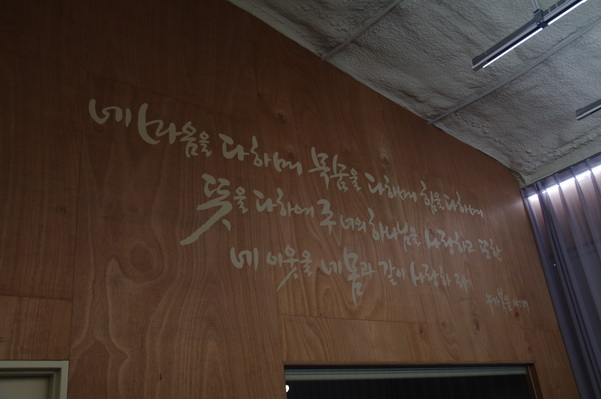 네 마음을 다하며 목숨을 다하며 힘을 다하며
뜻을 다하여 주 너의 하나님을 사랑하고 또한
네 이웃을 네 몸과 같이 사랑하라